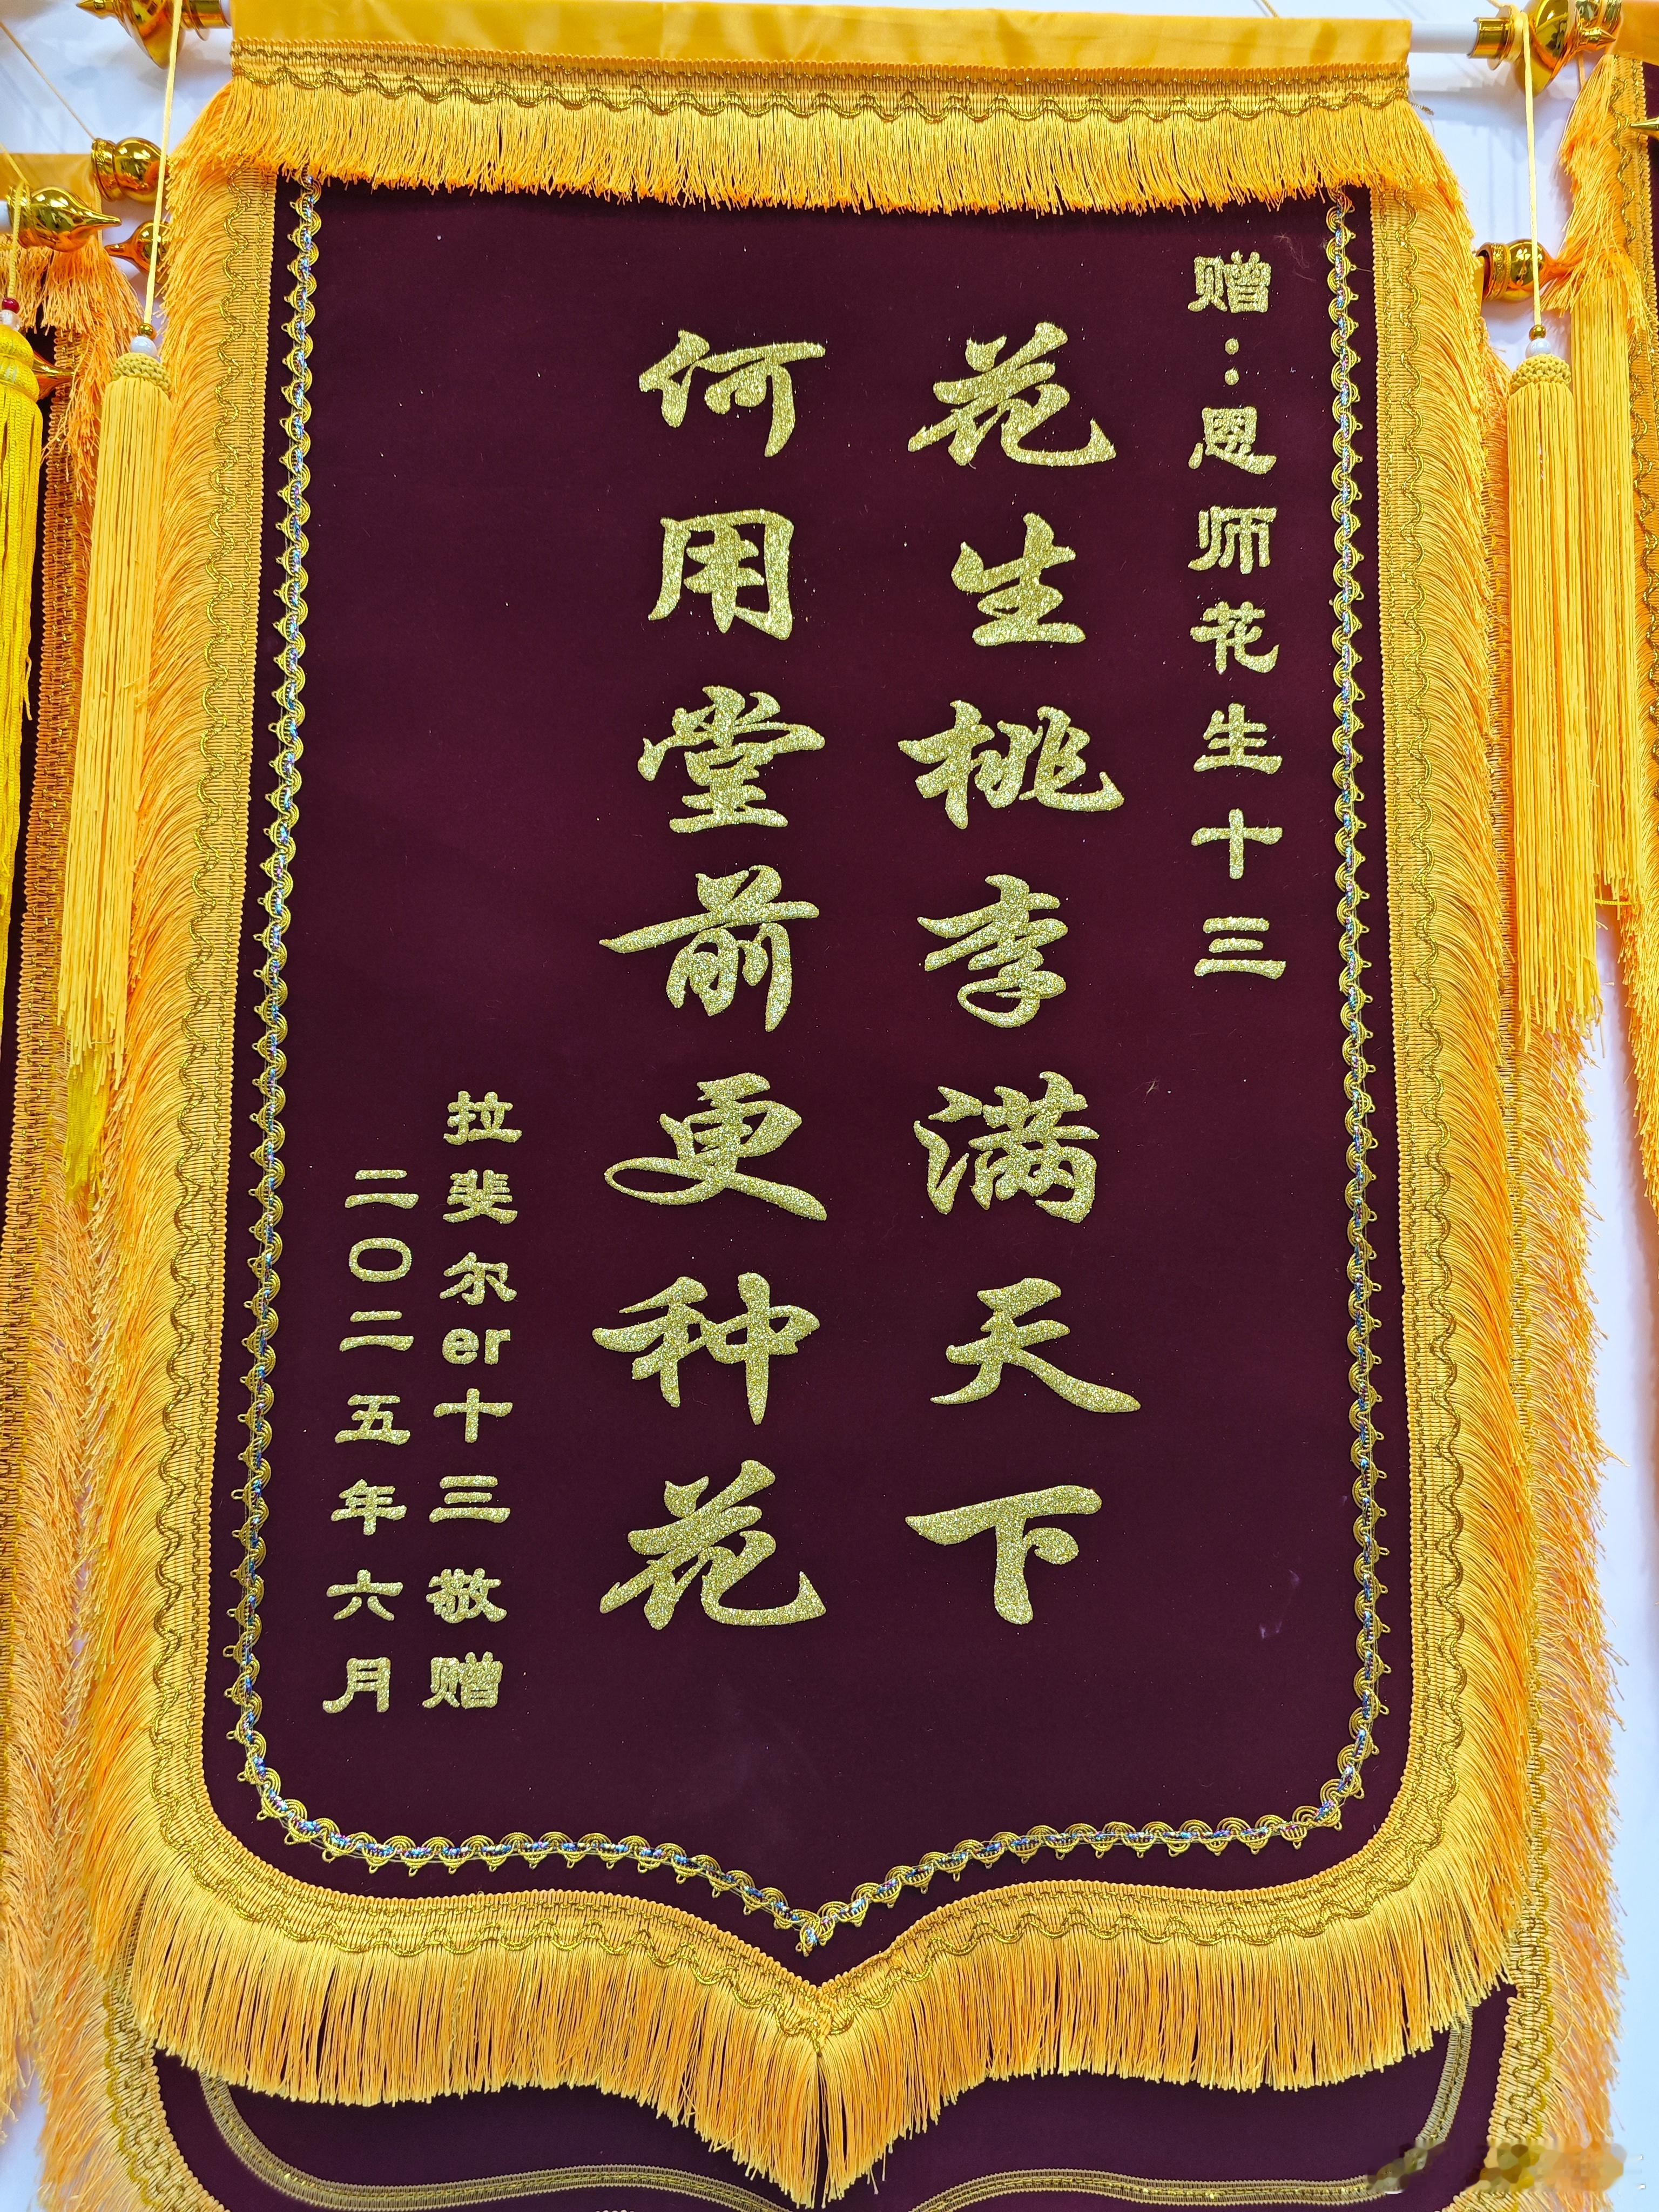 赠：恩师花生十三
花生桃李满天下
何用堂前更种花
拉斐尔er十三敬赠
二〇二五年六月